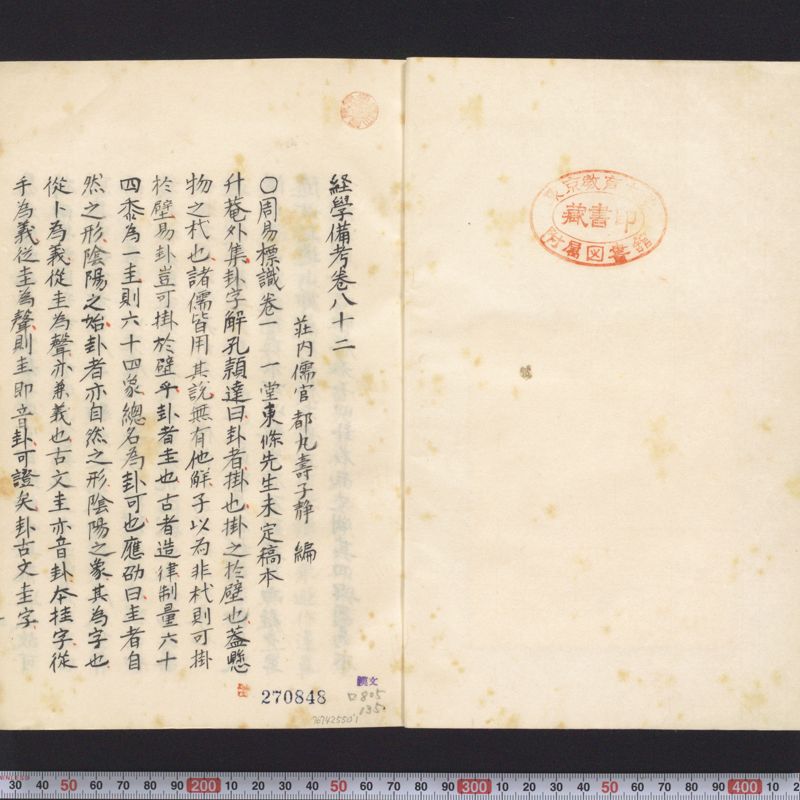 東京教育大学
蔵書印
附属図書館
経學備考卷八十二
荘内儒官 都丸壽子静 編
〇周易標識卷一 一堂東條先生未定稿本
升菴外集卦字解孔頴達曰卦者掛也掛之於壁也蓋懸
物之杙也諸儒皆用其説無有他解予以為非杙則可掛
於壁易卦豈可掛於壁乎卦者圭也古者造律制量六十
四黍為一圭則六十四象總名為卦可也應劭曰圭者自
然之形陰陽之始卦者亦自然之形陰陽之象其為字也
從卜為義從圭為聲亦兼義也古文圭亦音卦夲挂字從
手為義従圭為聲則圭即音卦可證矣卦古文圭字
270848
767425501
ロ805
135